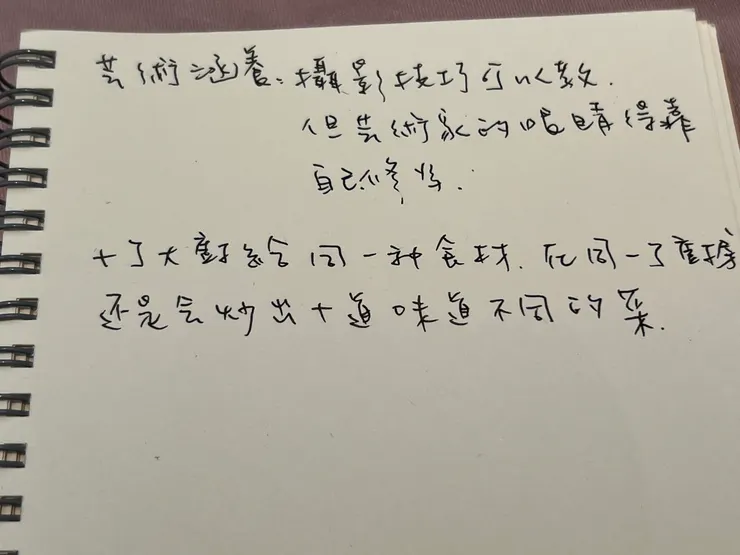 芸術涵養：攝影技巧可以教．
但芸術家的眼睛得靠
自己修煉．
十了大廚給同一种食材．在同一了廚房
还是会炒出十道味道不同的菜．